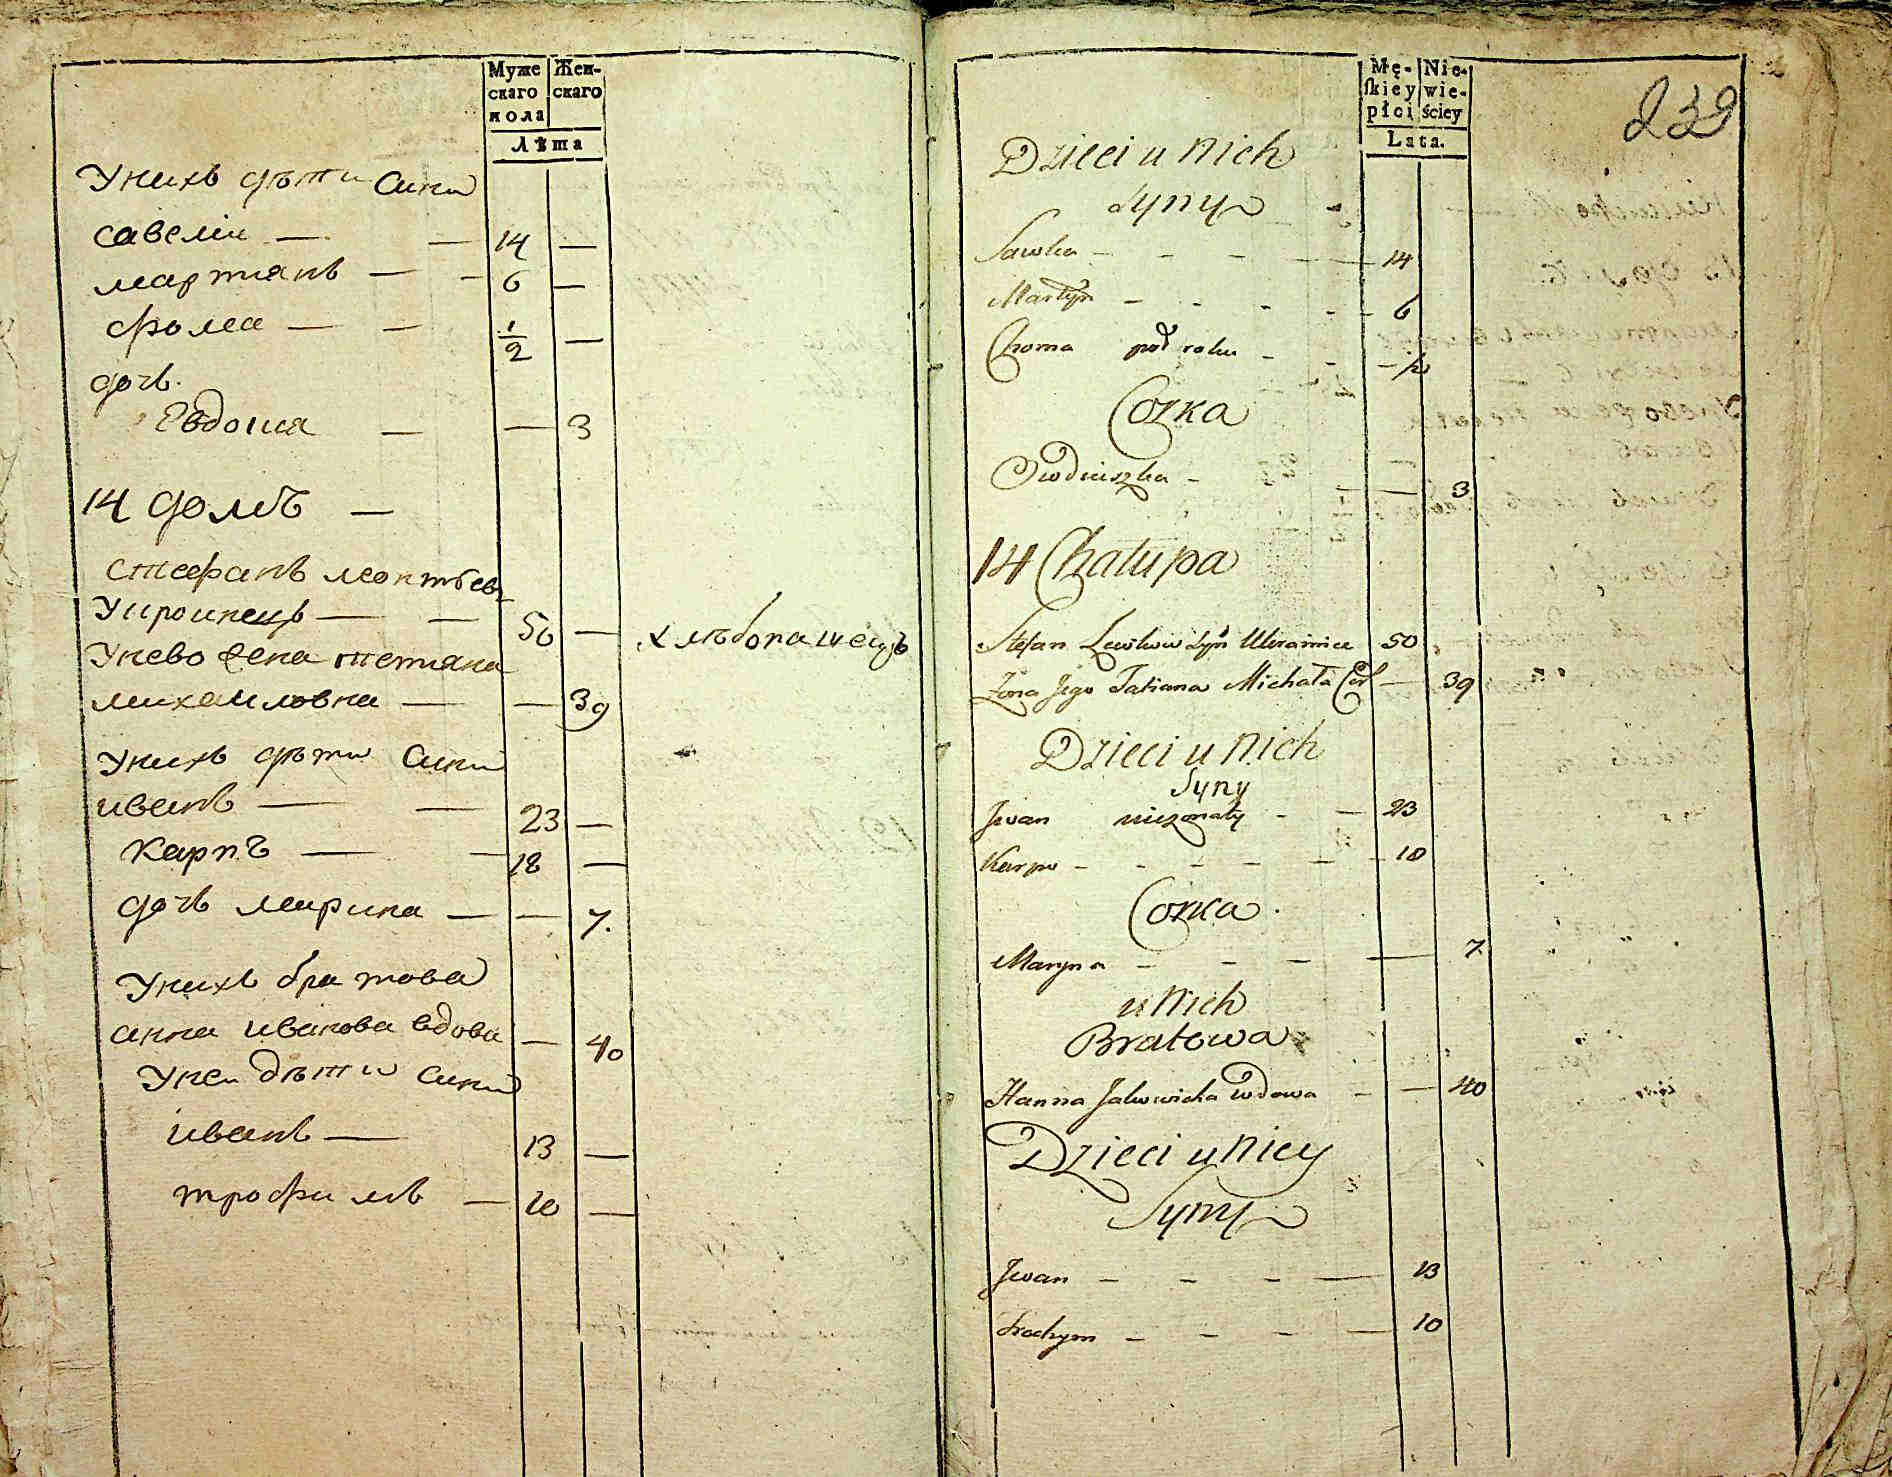 Муже
скаго
пола
Жен-
скаго
Лѣта
Унихъ дѣти Сини
савелии — — 14 —
мартианъ — — 6 —
фома — — 1/2 —
дочь.
Евдошиа — — 3
14 домъ —
стефанъ леонтъевъ
Украинецъ — — 50 — хлѣбопашецъ
Унево жена тетиана
михаиловна — — 39
Унихъ дѣти Сини
иванъ — — 23 —
карпъ — — 18 —
дочь марина — — 7.
Унихъ братова
анна иванова вдова — 40
Унеи дѣти сини
иванъ — 13 —
трофимъ — 10 —
239
Mę-
skiey
płci
Nie-
wie-
ściey
Lata.
Dzieci u Nich
Syny
Sawka - - - - — 14
Martyn - - - - - 6
Choma pod roku - - - 1/2
Corka
Owdiuszka - — — 3
14 Chałupa
Stefan Lewkow Syn Ukrainiec 50
Zona Jego Tatiana Michała Cór — 39
Dzieci u Nich
Syny
Jwan nieżonaty - — 23
Karpo - - - - - - 18
Corka.
Maryna - - - — 7
u Nich
Bratowa
Hanna Jakowicha Wdowa - — 40
Dzieci u Niey
Syny
Jwan - - - — 13
Trochym - - - — 10